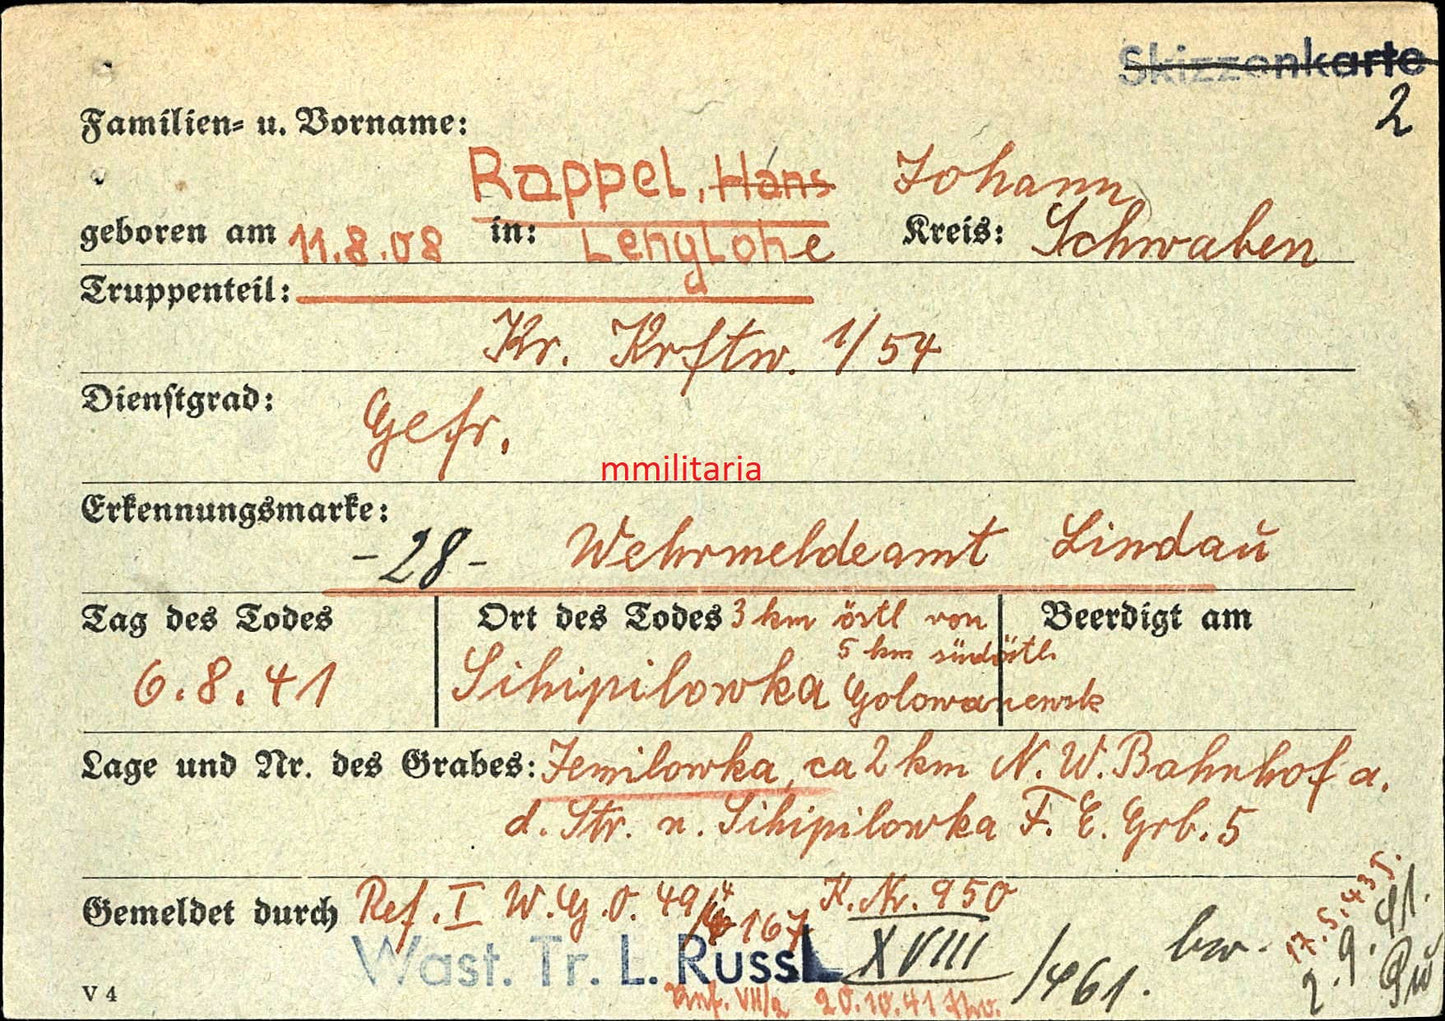 Skizzenkarte
2
Familien- u. Vorname:
Rappel, Hans Johann
geboren am 11.8.08 in: Lenglohe Kreis: Schwaben
Truppenteil:
Kr. Krftw. 1/54
Dienstgrad:
Gefr.
mmilitaria
Erkennungsmarke:
-28- Wehrmeldeamt Lindau
Tag des Todes
6.8.41
Ort des Todes 3 km östl von
5 km südöstl.
Sihipilowka Golowanewsk
Beerdigt am
Lage und Nr. des Grabes: Jemilowka, ca 2 km N. W. Bahnhof a.
d. Str. n. Sihipilowka F. E. Grb. 5
Gemeldet durch Ref. I W.G.O. 49/4 K. Nr. 950
167
Wast. Tr. L. Russl XVIII /461. bw.
17.5.43 S.
2.9.41.
V 4
VII/2 20.10.41